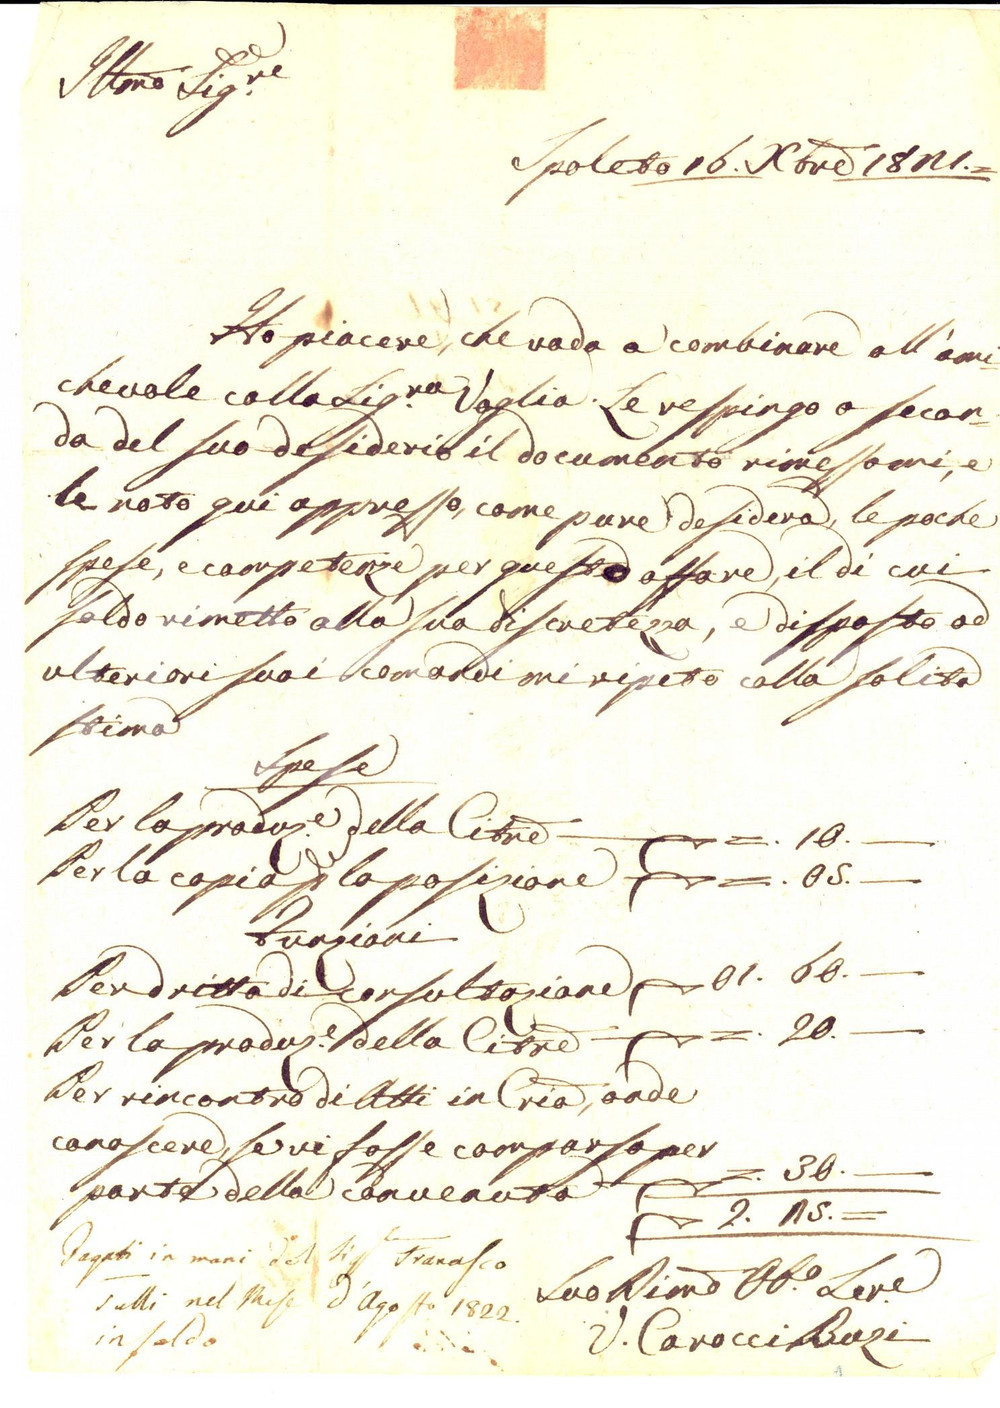 Illmo Sig.re
Spoleto 16. Xbre 1821.=
Ho piacere, che vada a combinare all'ami=
chevole colla Sig.ra Vaglia. Le respingo a secon=
da del suo desiderio il documento rimessomi, e
le noto qui appresso, come pure desidera, le poche
spese, e competenze per questo affare, il di cui
saldo rimetto alla sua discretezza, e disposto ad
ulteriori suoi comandi mi ripeto colla solita
stima
Spese
Per la produz.e della Citne =. 10.
Per la copia di la posizione =. 05.
Funzioni
Per dritto di consultazione 01. 60.
Per la produz.e della Citne =. 20.
Per rincontro di Atti in Cria, onde
conoscere, se vi fosse comparsa per
parte della convenuta =. 30.
2. 25.=
Pagati in mani del Sig.r Francesco
Tulli nel Mese d'Agosto 1822.
in saldo
Suo Dimo Obo Serv.e
V. Carocci Buzi